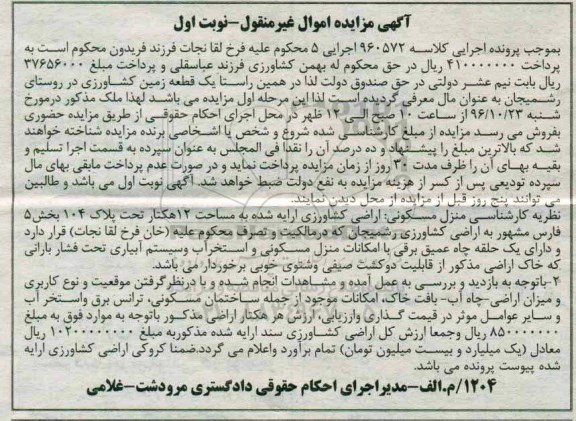 آگهی مزایده اموال غیرمنقول-نوبت اول
بموجب پرونده اجرایی کلاسه ۹۶۰۵۷۲ اجرایی ۵ محکوم علیه فرخ لقا نجات فرزند فریدون محکوم است به
پرداخت ۴۱۰۰۰۰۰۰۰۰ ریال در حق محکوم له بهمن کشاورزی فرزند عباسقلی و پرداخت مبلغ ۳۷۶۵۶۰۰۰
ریال بابت نیم عشر دولتی در حق صندوق دولت لذا در همین راستا یک قطعه زمین کشاورزی در روستای
رشمیجان به عنوان مال معرفی گردیده است لذا این مرحله اول مزایده می باشد لهذا ملک مذکور درمورخ
شنبه ۹۶/۱۰/۲۳ از ساعت ۱۰ صبح الی ۱۲ ظهر در محل اجرای احکام حقوقی از طریق مزایده حضوری
بفروش می رسد مزایده از مبلغ کارشناسی شده شروع و شخص یا اشخاصی برنده مزایده شناخته خواهند
شد که بالاترین مبلغ را پیشنهاد و ده درصد آن را نقدا فی المجلس به عنوان سپرده به قسمت اجرا تسلیم و
بقیه بهای آن را ظرف مدت ۳۰ روز از زمان مزایده پرداخت نماید و در صورت عدم پرداخت مابقی بهای مال
سپرده تودیعی پس از کسر از هزینه مزایده به نفع دولت ضبط خواهد شد. آگهی نوبت اول می باشد و طالبین
می توانند پنج روز قبل از مزایده از محل دیدن نمایند.
نظریه کارشناسی منزل مسکونی: اراضی کشاورزی ارایه شده به مساحت ۱۲هکتار تحت پلاک ۱۰۴ بخش۵
فارس مشهور به اراضی کشاورزی رشمیجان که درمالکیت و تصرف محکوم علیه (خان فرخ لقا نجات) قرار دارد
و دارای یک حلقه چاه عمیق برقی با امکانات منزل مسکونی و استخرآب وسیستم آبیاری تحت فشار بارانی
که خاک اراضی مذکور از قابلیت دوکشت صیفی وشتوی خوبی برخوردار می باشد.
۲-باتوجه به بازدید و بررسی به عمل آمده و مشاهدات انجام شده و با درنظرگرفتن موقعیت و نوع کاربری
و میزان اراضی-چاه آب- بافت خاک، امکانات موجود از جمله ساختمان مسکونی، ترانس برق واستخر آب
و سایر عوامل موثر در قیمت گذاری وارزیابی، ارزش هر هکتار اراضی مذکور باتوجه به موارد فوق به مبلغ
۸۵۰۰۰۰۰۰۰ ریال وجمعا ارزش کل اراضی کشاورزی سند ارایه شده مذکوربه مبلغ ۱۰۲۰۰۰۰۰۰۰۰ ریال
معادل (یک میلیارد و بیست میلیون تومان) تمام برآورد واعلام می گردد.ضمنا کروکی اراضی کشاورزی ارایه
شده پیوست پرونده می باشد.
۱۲۰۴/م.الف-مدیراجرای احکام حقوقی دادگستری مرودشت-غلامی